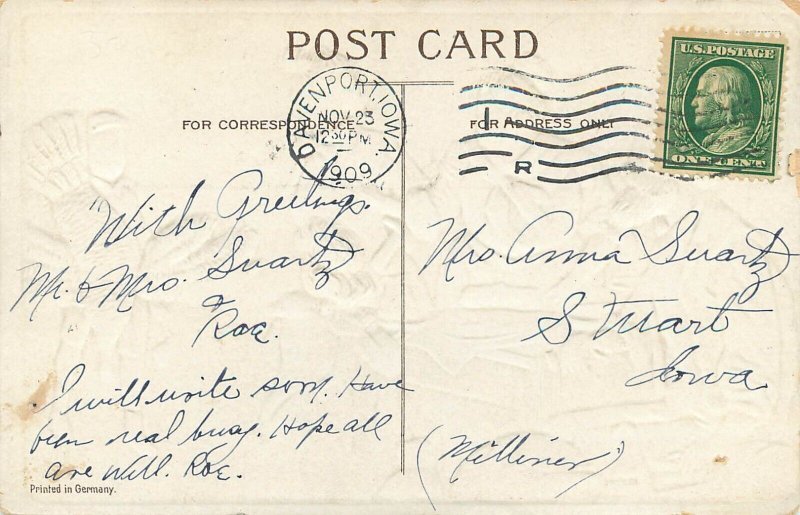 POST CARD
FOR CORRESPONDENCE
FOR ADDRESS ONLY
DAVENPORT, IOWA.
NOV 23
12 30 PM
1909
R
U.S. POSTAGE
ONE CENT
With Greetings.
Mr. & Mrs. Swartz
&
Roe.
I will write soon. Have
been real busy. Hope all
are well. Roe.
Printed in Germany.
Mrs. Anna Swartz
Stuart
Iowa
(Milliner)